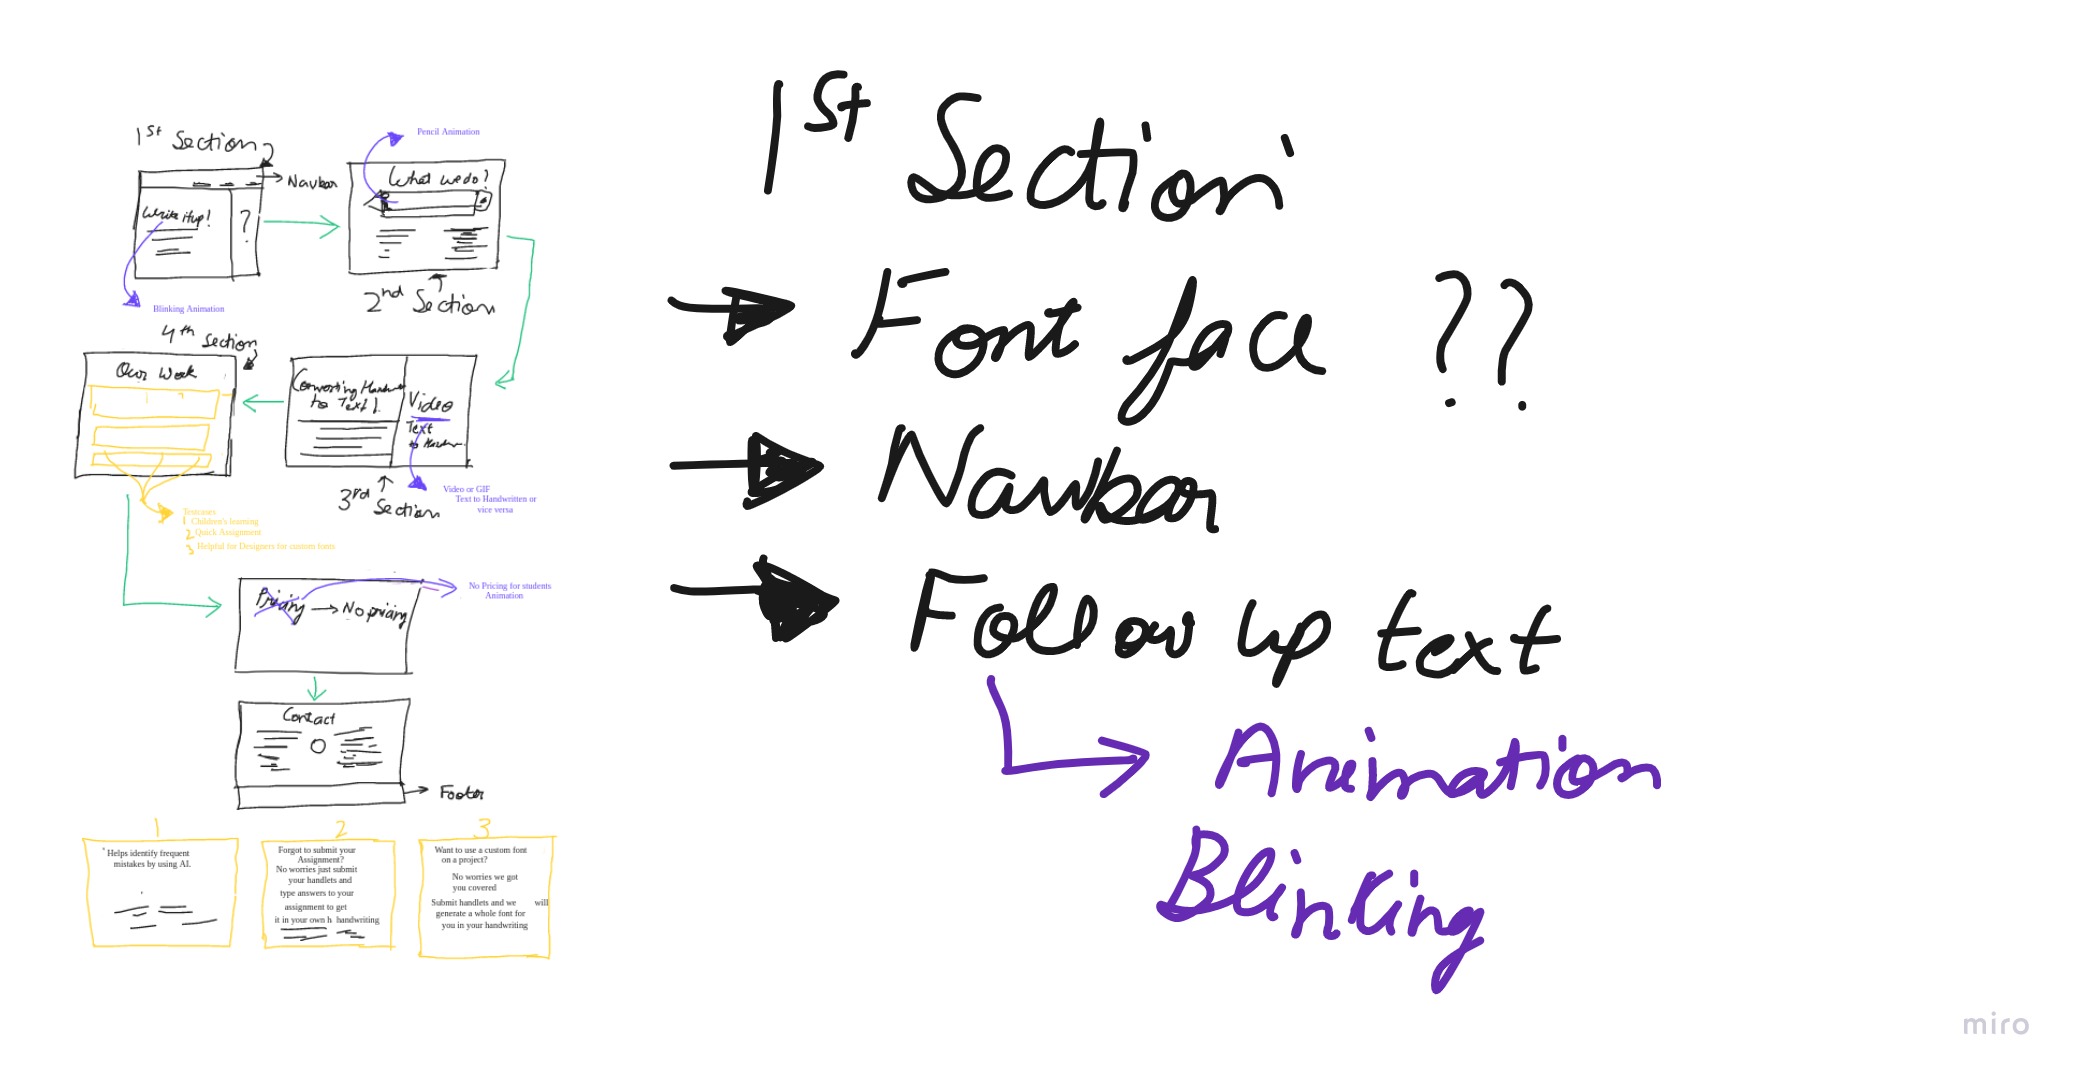 1st Section
Navbar
Write it up!
?
Blinking Animation
Pencil Animation
What we do?
2nd Section
4th Section
Our Work
Converting Handwr
to Text!
Video
Text
to Handwr
3rd Section
Video or GIF
Text to Handwritten or
vice versa
Testcases
1 Children's learning
2 Quick Assignment
3 Helpful for Designers for custom fonts
Pricing → No pricing
No Pricing for students
Animation
Contact
Footer
1
Helps identify frequent
mistakes by using AI.
2
Forgot to submit your
Assignment?
No worries just submit
your handlets and
type answers to your
assignment to get
it in your own h handwriting
3
Want to use a custom font
on a project?
No worries we got
you covered
Submit handlets and we will
generate a whole font for
you in your handwriting
1st Section
→ Font face ??
→ Navbar
→ Follow up text
Animation
Blinking
miro